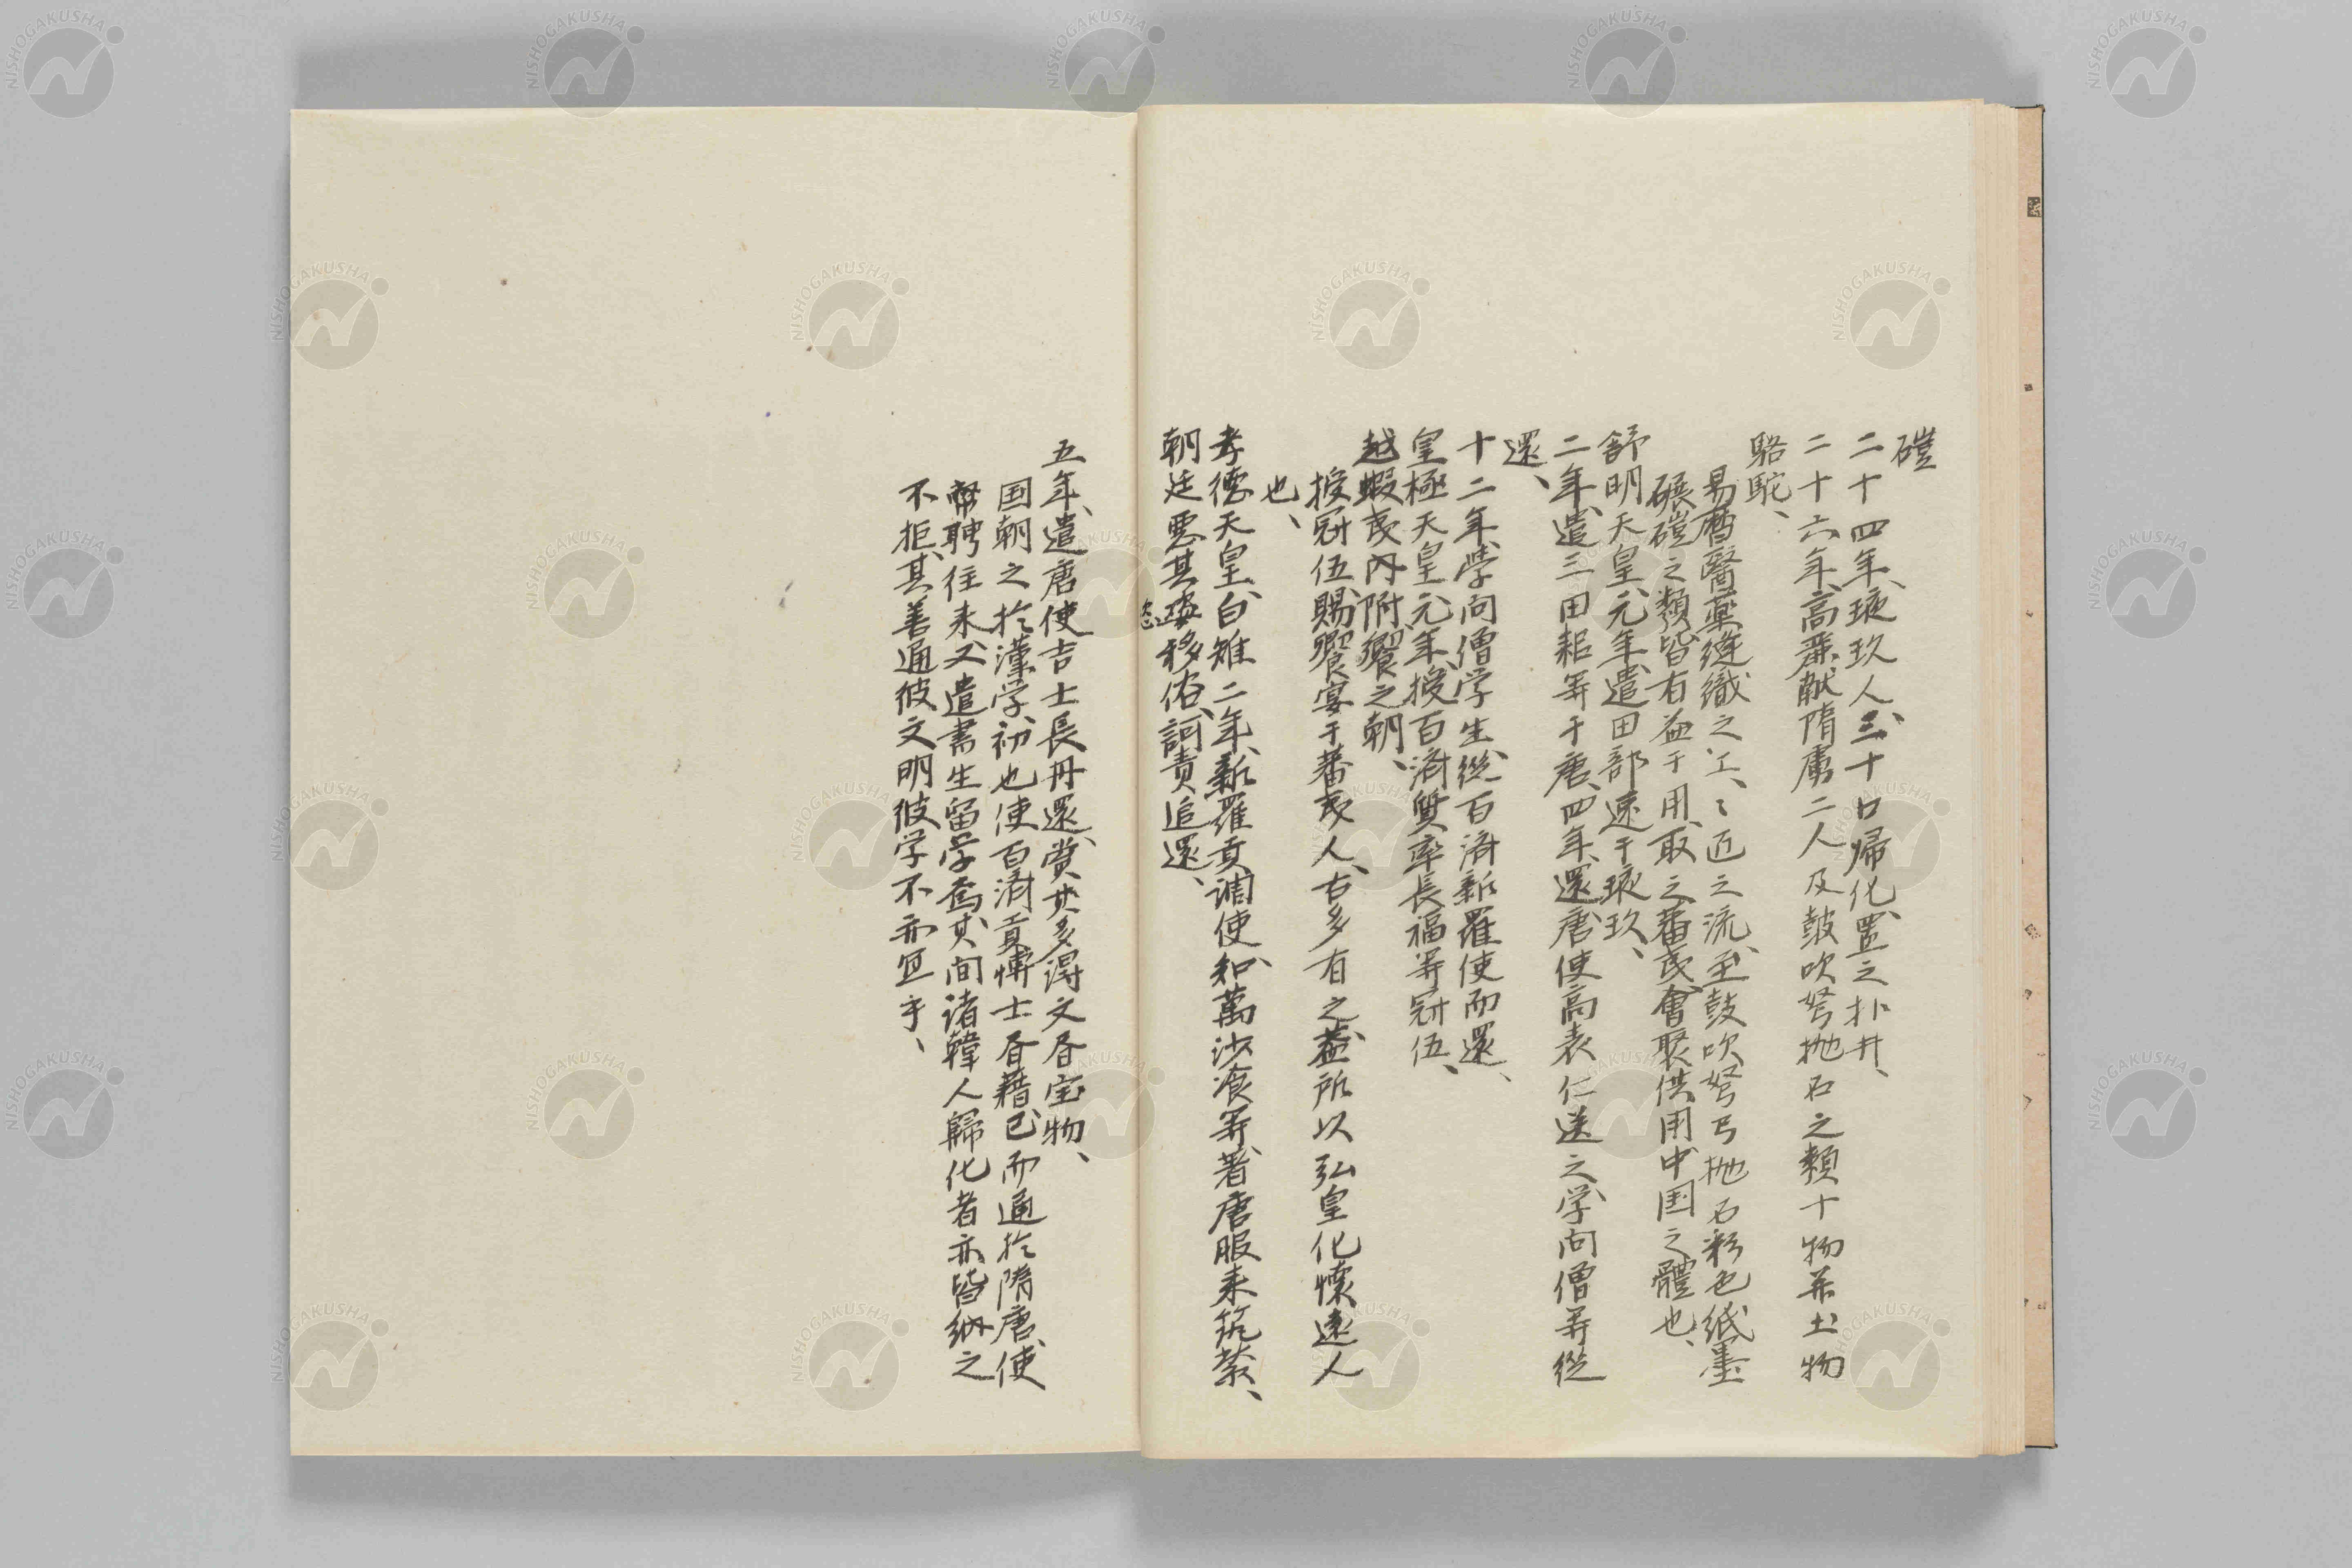 磑
二十四年、掖玖人、三十口歸化、置之扑井、
二十六年、高麗献隋虜二人及鼓吹弩抛石之類十物并土物
駱駝、
易暦醫藥縫織之工、〻匠之流、至鼓吹弩弓抛石彩色紙墨
碾磑之類、皆有益于用、取之蕃夷、會聚供用、中国之體也、
舒明天皇、元年、遣田部連于掖玖、
二年、遣三田耜等于唐、四年、還、唐使高表仁送之、学問僧等從
還、
十二年、學問僧学生、從百済新羅使而還、
皇極天皇、元年、授百済質率長福等冠伍、
越蝦夷内附、饗之朝、
授冠伍、賜饗宴于蕃夷人、古多有之、蓋所以弘皇化懷遠人
也、
孝德天皇、白雉二年、新羅貢調使、知萬沙飡等、著唐服来筑紫、
朝廷惡其恣移俗、訶責追還、
五年、遣唐使吉士長丹還、賞其多得文書宝物、
国朝之於漢学、初也使百済貢博士書籍、已而通於隋唐、使
幣聘往来、又遣書生留学焉、其間諸韓人歸化者亦皆納之
不拒、其善通彼文明彼学不亦宜乎、
NISHOGAKUSHA